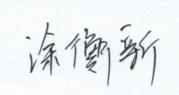 涂衡新